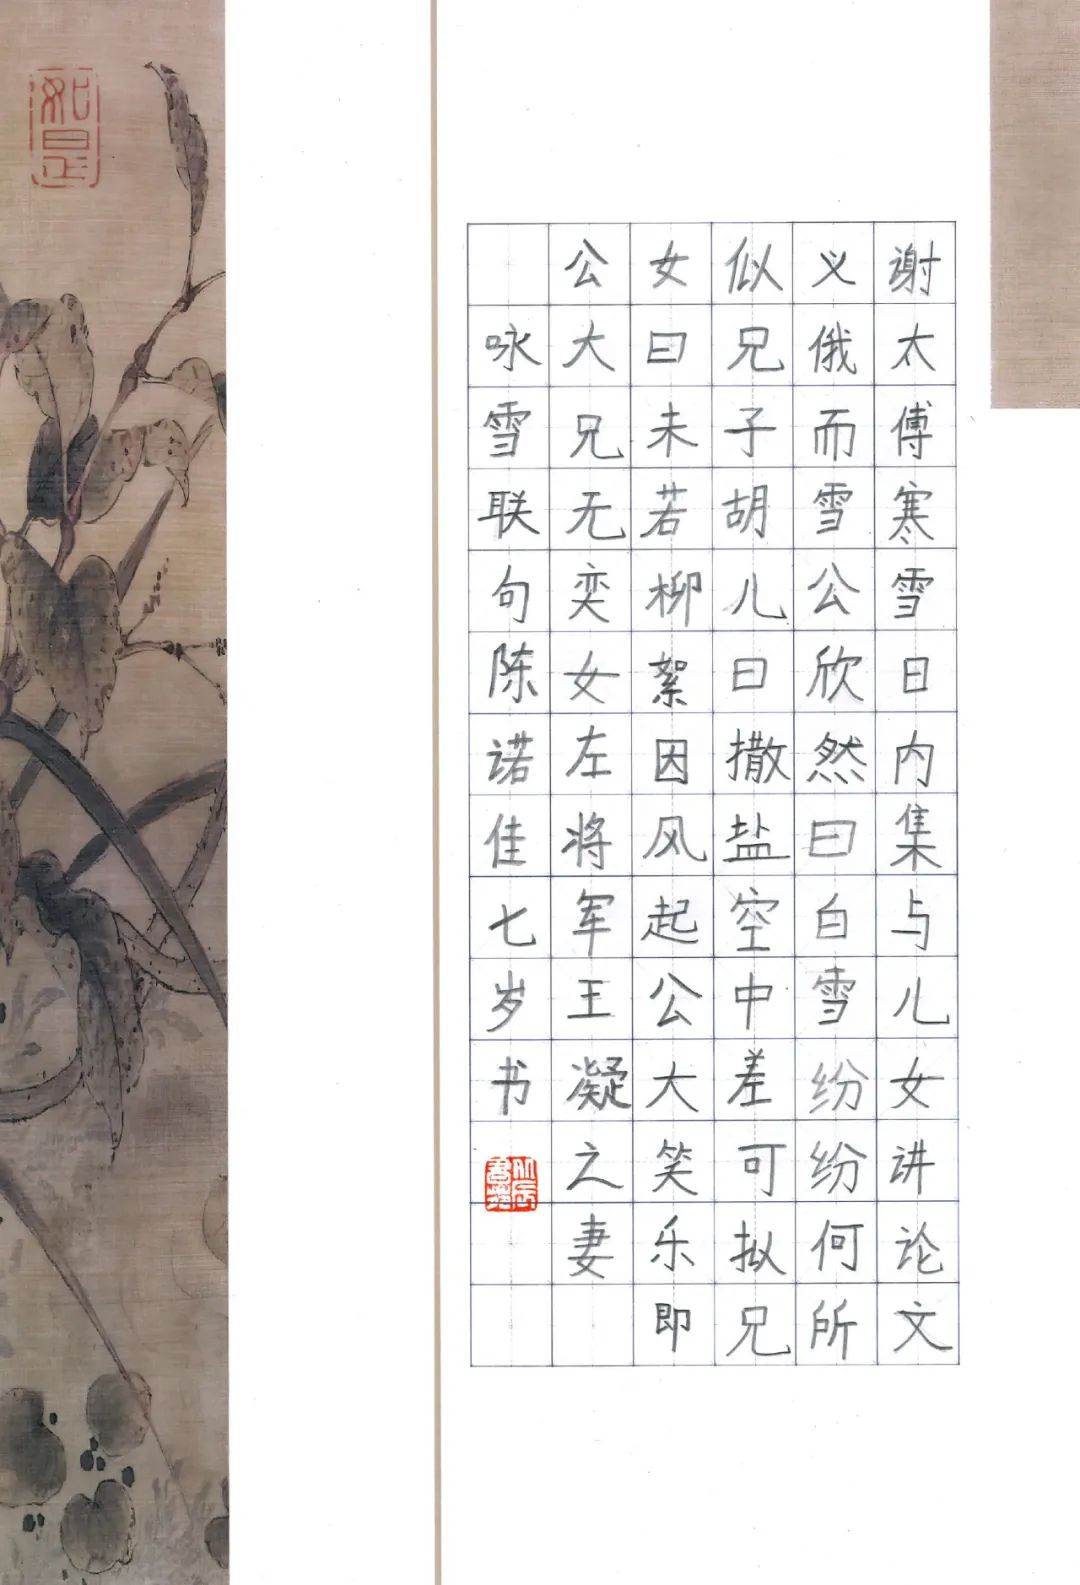 谢太傅寒雪日内集与儿女讲论文
义俄而雪公欣然曰白雪纷纷何所
似兄子胡儿曰撒盐空中差可拟兄
女曰未若柳絮因风起公大笑乐即
公大兄无奕女左将军王凝之妻
咏雪联句陈诺佳七岁书
如是